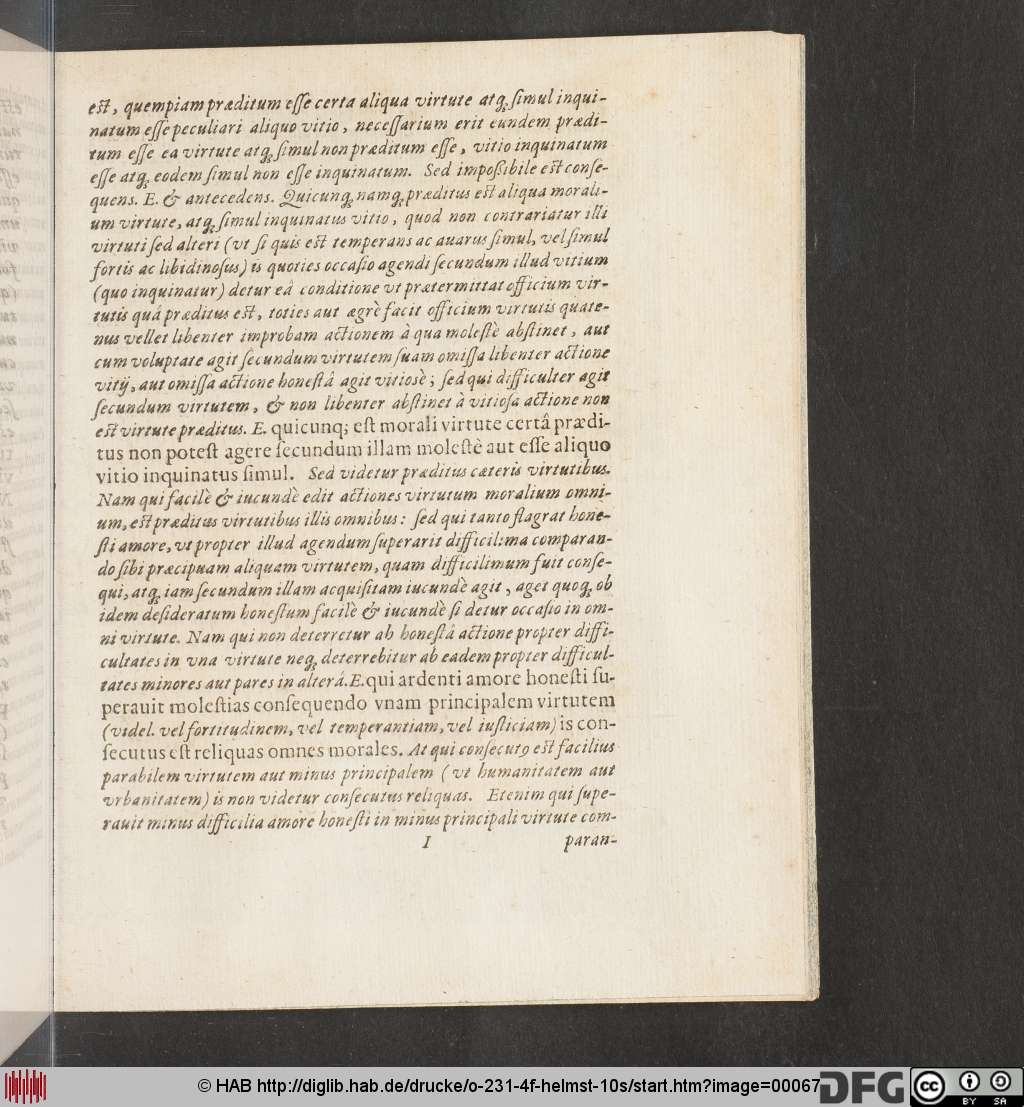 est, quempiam præditum esse certa aliqua virtute atq; simul inqui-
natum esse peculiari aliquo vitio, necessarium erit eundem prædi-
tum esse ea virtute atq; simul non præditum esse, vitio inquinatum
esse atq; eodem simul non esse inquinatum. Sed impoßibile est conse-
quens. E. & antecedens. Quicunq; namq; præditus est aliqua morali-
um virtute, atq; simul inquinatus vitio, quod non contrariatur illi
virtuti sed alteri (vt si quis est temperans ac auarus simul, vel simul
fortis ac libidinosus) is quoties occasio agendi secundum illud vitium
(quo inquinatur) detur eâ conditione vt prætermittat officium vir-
tutis quâ præditus est, toties aut ægrè facit officium virtutis quate-
nus vellet libenter improbam actionem à qua molestè abstinet, aut
cum voluptate agit secundum virtutem suam omissa libenter actione
vitÿ, aut omissa actione honestâ agit vitiosè; sed qui difficulter agit
secundum virtutem, & non libenter abstinet à vitiosa actione non
est virtute præditus. E. quicunq; est morali virtute certâ prædi-
tus non potest agere secundum illam molestè aut esse aliquo
vitio inquinatus simul. Sed videtur præditus cæteris virtutibus.
Nam qui facilè & iucundè edit actiones virtutum moralium omni-
um, est præditus virtutibus illis omnibus: sed qui tanto flagrat hone-
sti amore, vt propter illud agendum superarit difficilima comparan-
do sibi præcipuam aliquam virtutem, quam difficilimum fuit conse-
qui, atq; iam secundum illam acquisitam iucundè agit, aget quoq; ob
idem desideratum honestum facilè & iucundè si detur occasio in om-
ni virtute. Nam qui non deterretur ab honestâ actione propter diffi-
cultates in vna virtute neq; deterrebitur ab eadem propter difficul-
tates minores aut pares in alterâ. E. qui ardenti amore honesti su-
perauit molestias consequendo vnam principalem virtutem
(videl. vel fortitudinem, vel temperantiam, vel iusticiam) is con-
secutus est reliquas omnes morales. At qui consecutꝯ est facilius
parabilem virtutem aut minus principalem (vt humanitatem aut
vrbanitatem) is non videtur consecutus reliquas. Etenim qui supe-
rauit minus difficilia amore honesti in minus principali virtute com-
I paran-
© HAB http://diglib.hab.de/drucke/o-231-4f-helmst-10s/start.htm?image=00067
DFG
cc BY SA